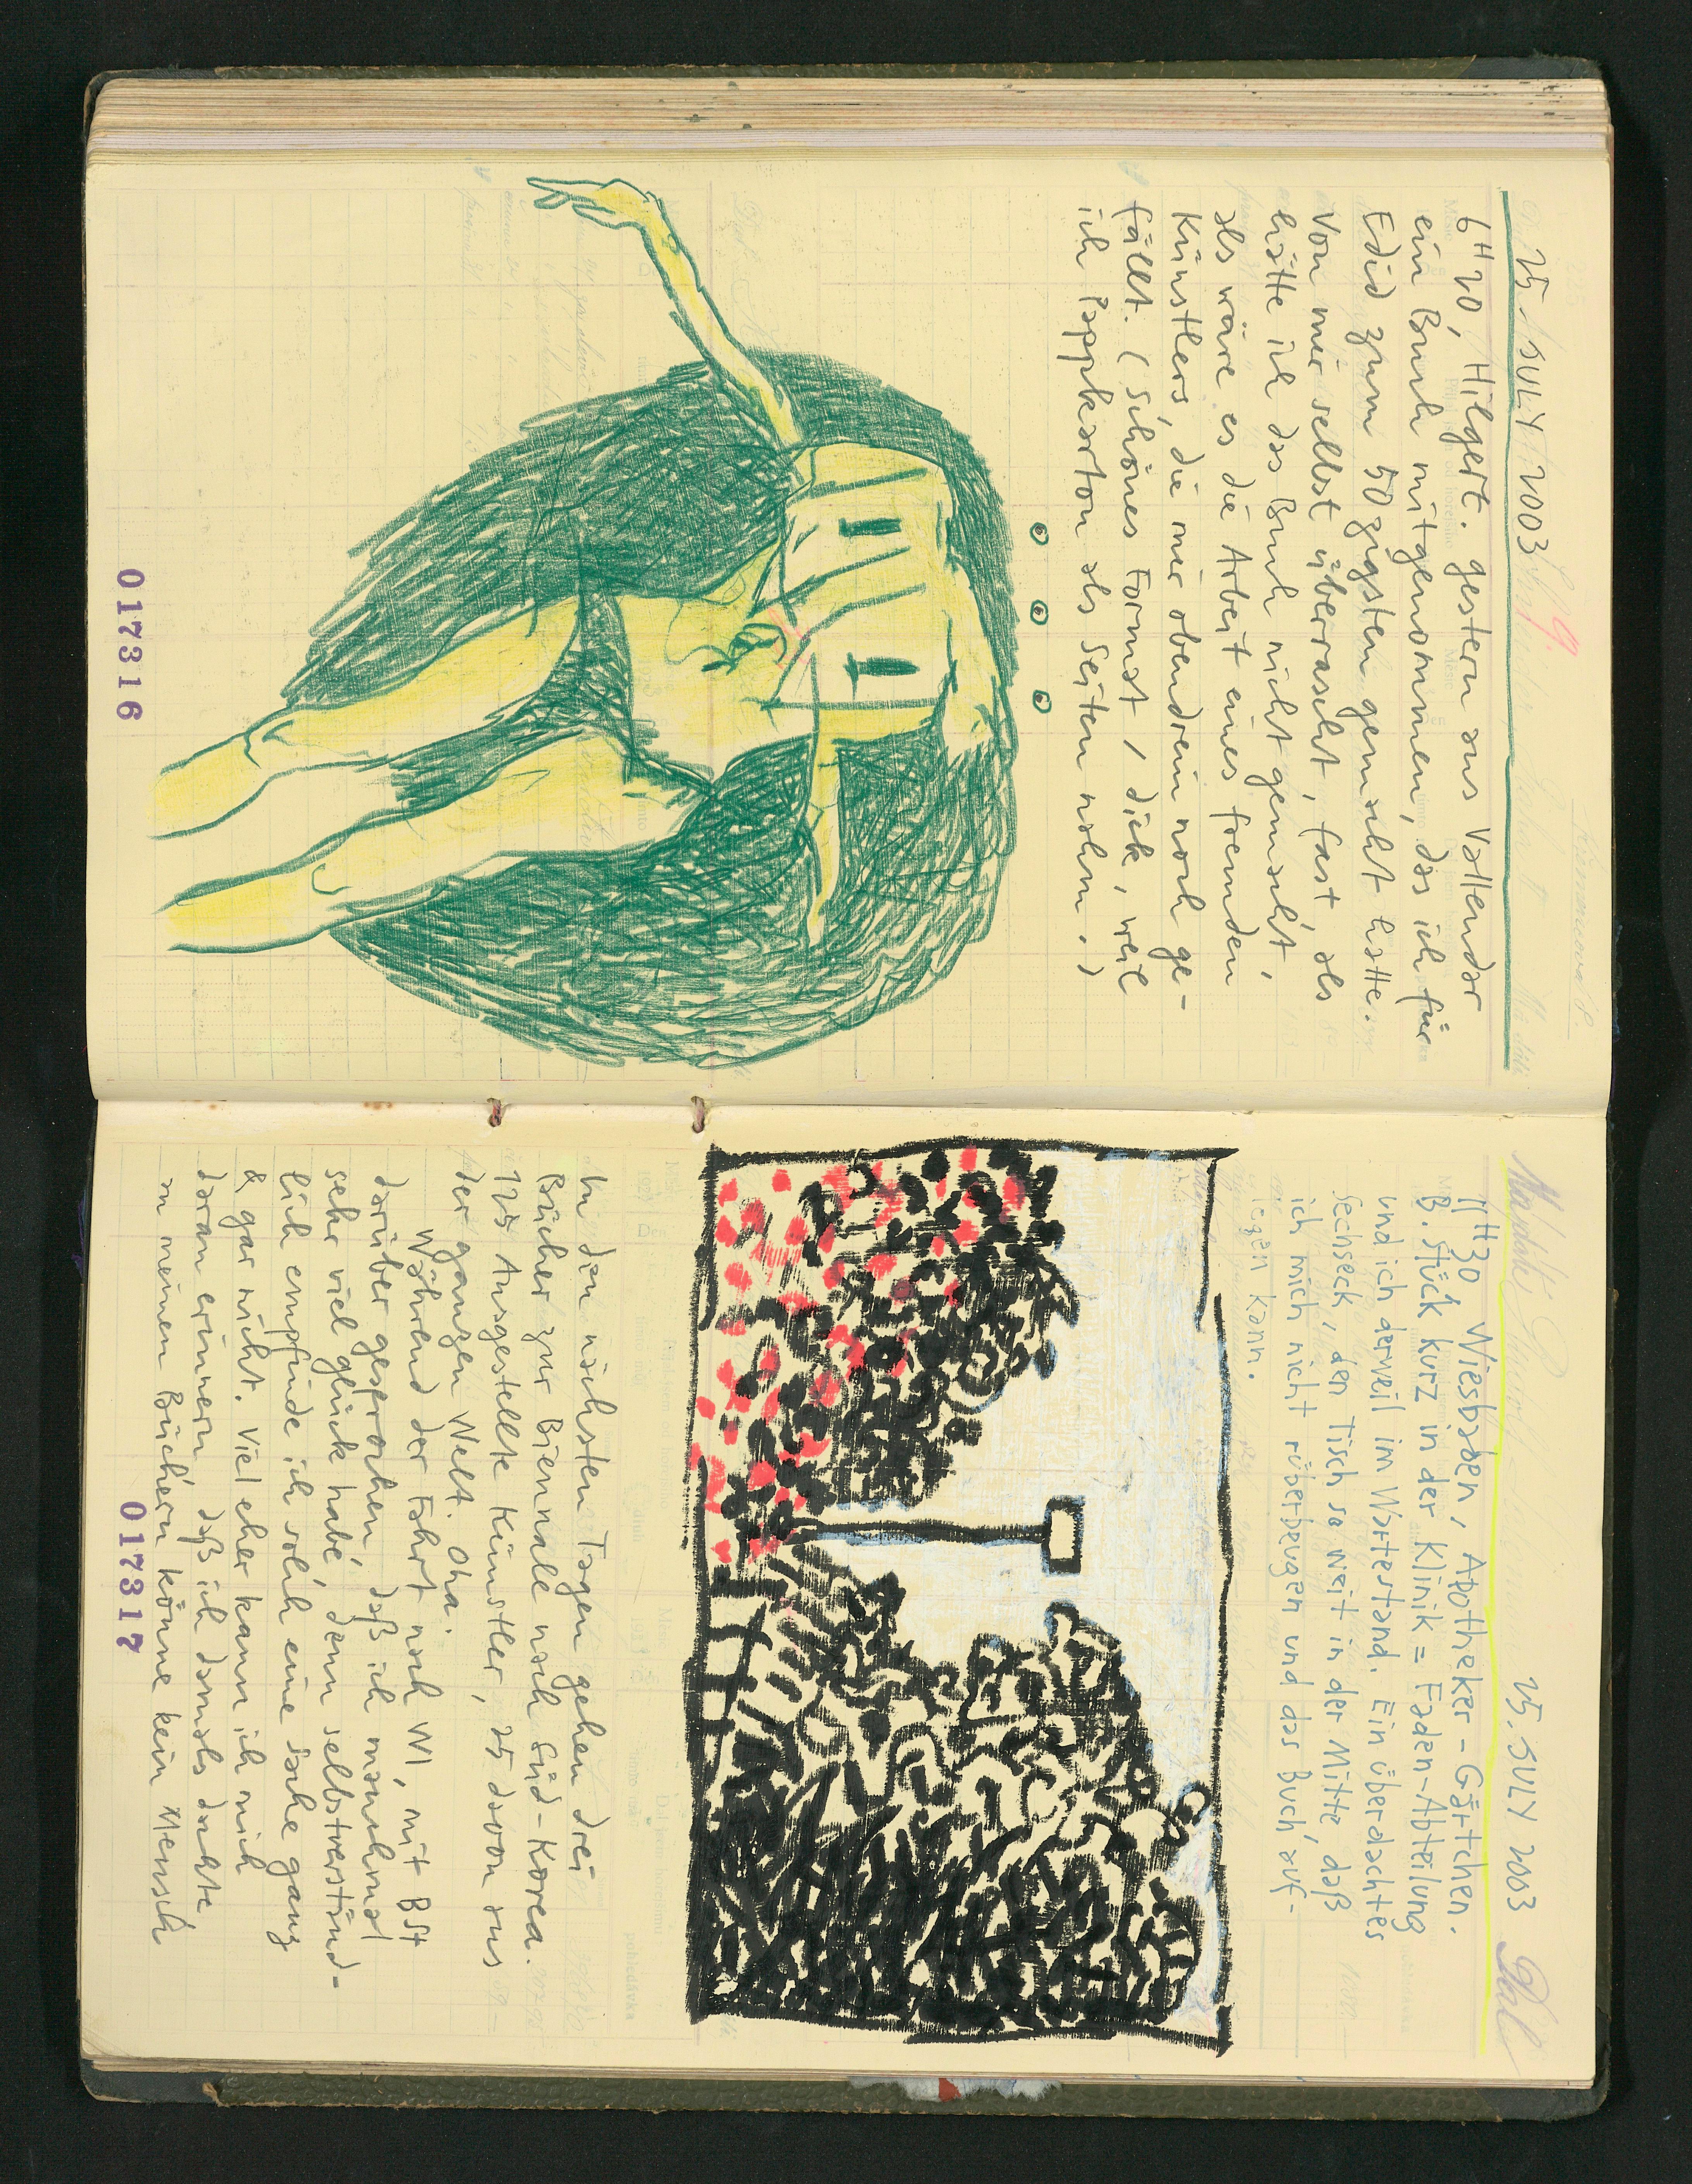 25. JULY 2003
6H20, Hilgert. gestern aus Vallendar
ein Buch mitgenommen, das ich für
Edid zum 50zigsten gemacht hatte.
Von mir selbst überrascht, fast, als
hätte ich das Buch nicht gemacht,
als wäre es die Arbeit eines fremden
Künstlers, die mir obendrein noch ge-
fällt. (Schönes Format / dick, weil
ich Pappkarton als Seiten nahm.)
017316
25. JULY 2003
11H30 Wiesbaden, Apotheker-Gärtchen.
B. Stück kurz in der Klinik = Fäden-Abteilung
und ich derweil im Wartestand. Ein überdachtes
Sechseck, den Tisch so weit in der Mitte, daß
ich mich nicht rüberbeugen und das Buch auf-
legen kann.
In den nächsten Tagen gehen drei
Bücher zur Biennale nach Süd-Korea.
125 Ausgestellte Künstler, 25 davon aus
der ganzen Welt. Oha.
Während der Fahrt nach WI, mit BSt
darüber gesprochen, daß ich manchmal
sehr viel Glück habe, denn selbstverständ-
lich empfinde ich solch eine Sache ganz
& gar nicht. Viel eher kann ich mich
daran erinnern, daß ich damals dachte,
an meinen Büchern könne kein Mensch
017317